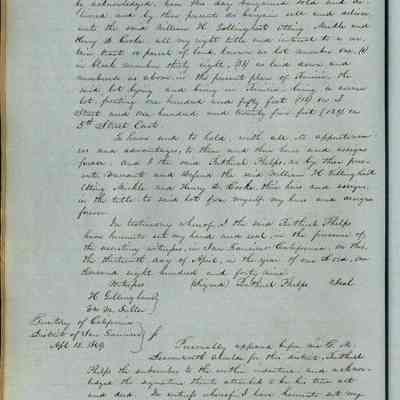 be acknowledged, have this day bargained sold and de-
livered and by these presents do bargain sell and deliver
unto the said William H. Gillinghast Utting Mickle and
Henry D. Cooke all my right title and interest to a cer-
tain tract or parcel of land, known as lot number one (1)
in block number thirty eight, (38) as laid down and
numbered as above, in the present plan of Benicia, the
said lot lying and being in Benicia, being a corner
lot, fronting one hundred and fifty feet (150) on I
Street and one hundred and twenty five feet (125) on
5th Street East.
To have and to hold, with all its appurtenan-
ces and advantages, to them and their heirs and assigns
forever. And I the said Bethuel Phelps, as by these pres-
ents, warrant and defend the said William H Gillinghast
Utting Mickle and Henry D. Cooke, their heirs and assigns,
in the title to said lot from myself my heirs and assigns
forever.
In testimony whereof I the said Bethuel Phelps
have hereunto set my hand and seal, in the presence of
the assisting witnesses, in San Francisco California, on this,
the thirteenth day of April, in the year of our Lord, one
thousand eight hundred and forty nine.
Witnesses (Signed) Bethuel Phelps Seal
H Gillinghast
Territory of California
District of San Francisco
Apl. 13. 1849.
Personally appeared before me T. M.
Leavenworth Alcalde for this district, Bethuel
Phelps the subscriber to the within indenture and acknow-
ledged the signature thereto attached to be his true act
and deed. In witness whereof I have hereunto set my